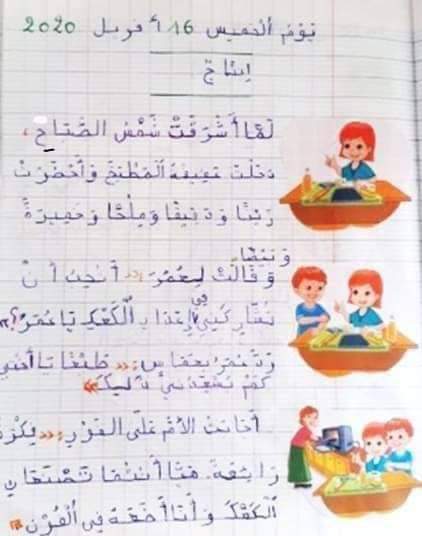 يَوْمَ الْخَمِيسِ 16 أَفْرِيل 2020
إِنْتَاجٌ
لَمَّا أَشْرَقَتْ شَمْسُ الصَّبَاحِ،
دَخَلَتْ عَفِيفَةُ الْمَطْبَخَ وَ أَحْضَرَتْ
زَيْتًا وَ دَقِيقًا وَ مِلْحًا وَ خَمِيرَةً
وَ بَيْضًا.
وَ قَالَتْ لِعُمَرَ: «أَتُحِبُّ أَنْ
تُشَارِكَنِي فِي إِعْدَادِ الْكَعْكِ يَا عُمَرُ؟»
رَدَّ عُمَرُ بِحَمَاسٍ: «طَبْعًا يَا أُخْتِي
كَمْ يُسْعِدُنِي ذَلِكَ»
أَجَابَتْ الأُمُّ عَلَى الْفَوْرِ: «فِكْرَةٌ
رَائِعَةٌ. هَيَّا أَنْتُمَا تَصْنَعَانِ
الْكَعْكَ وَ أَنَا أَضَعُهُ فِي الْفُرْنِ»